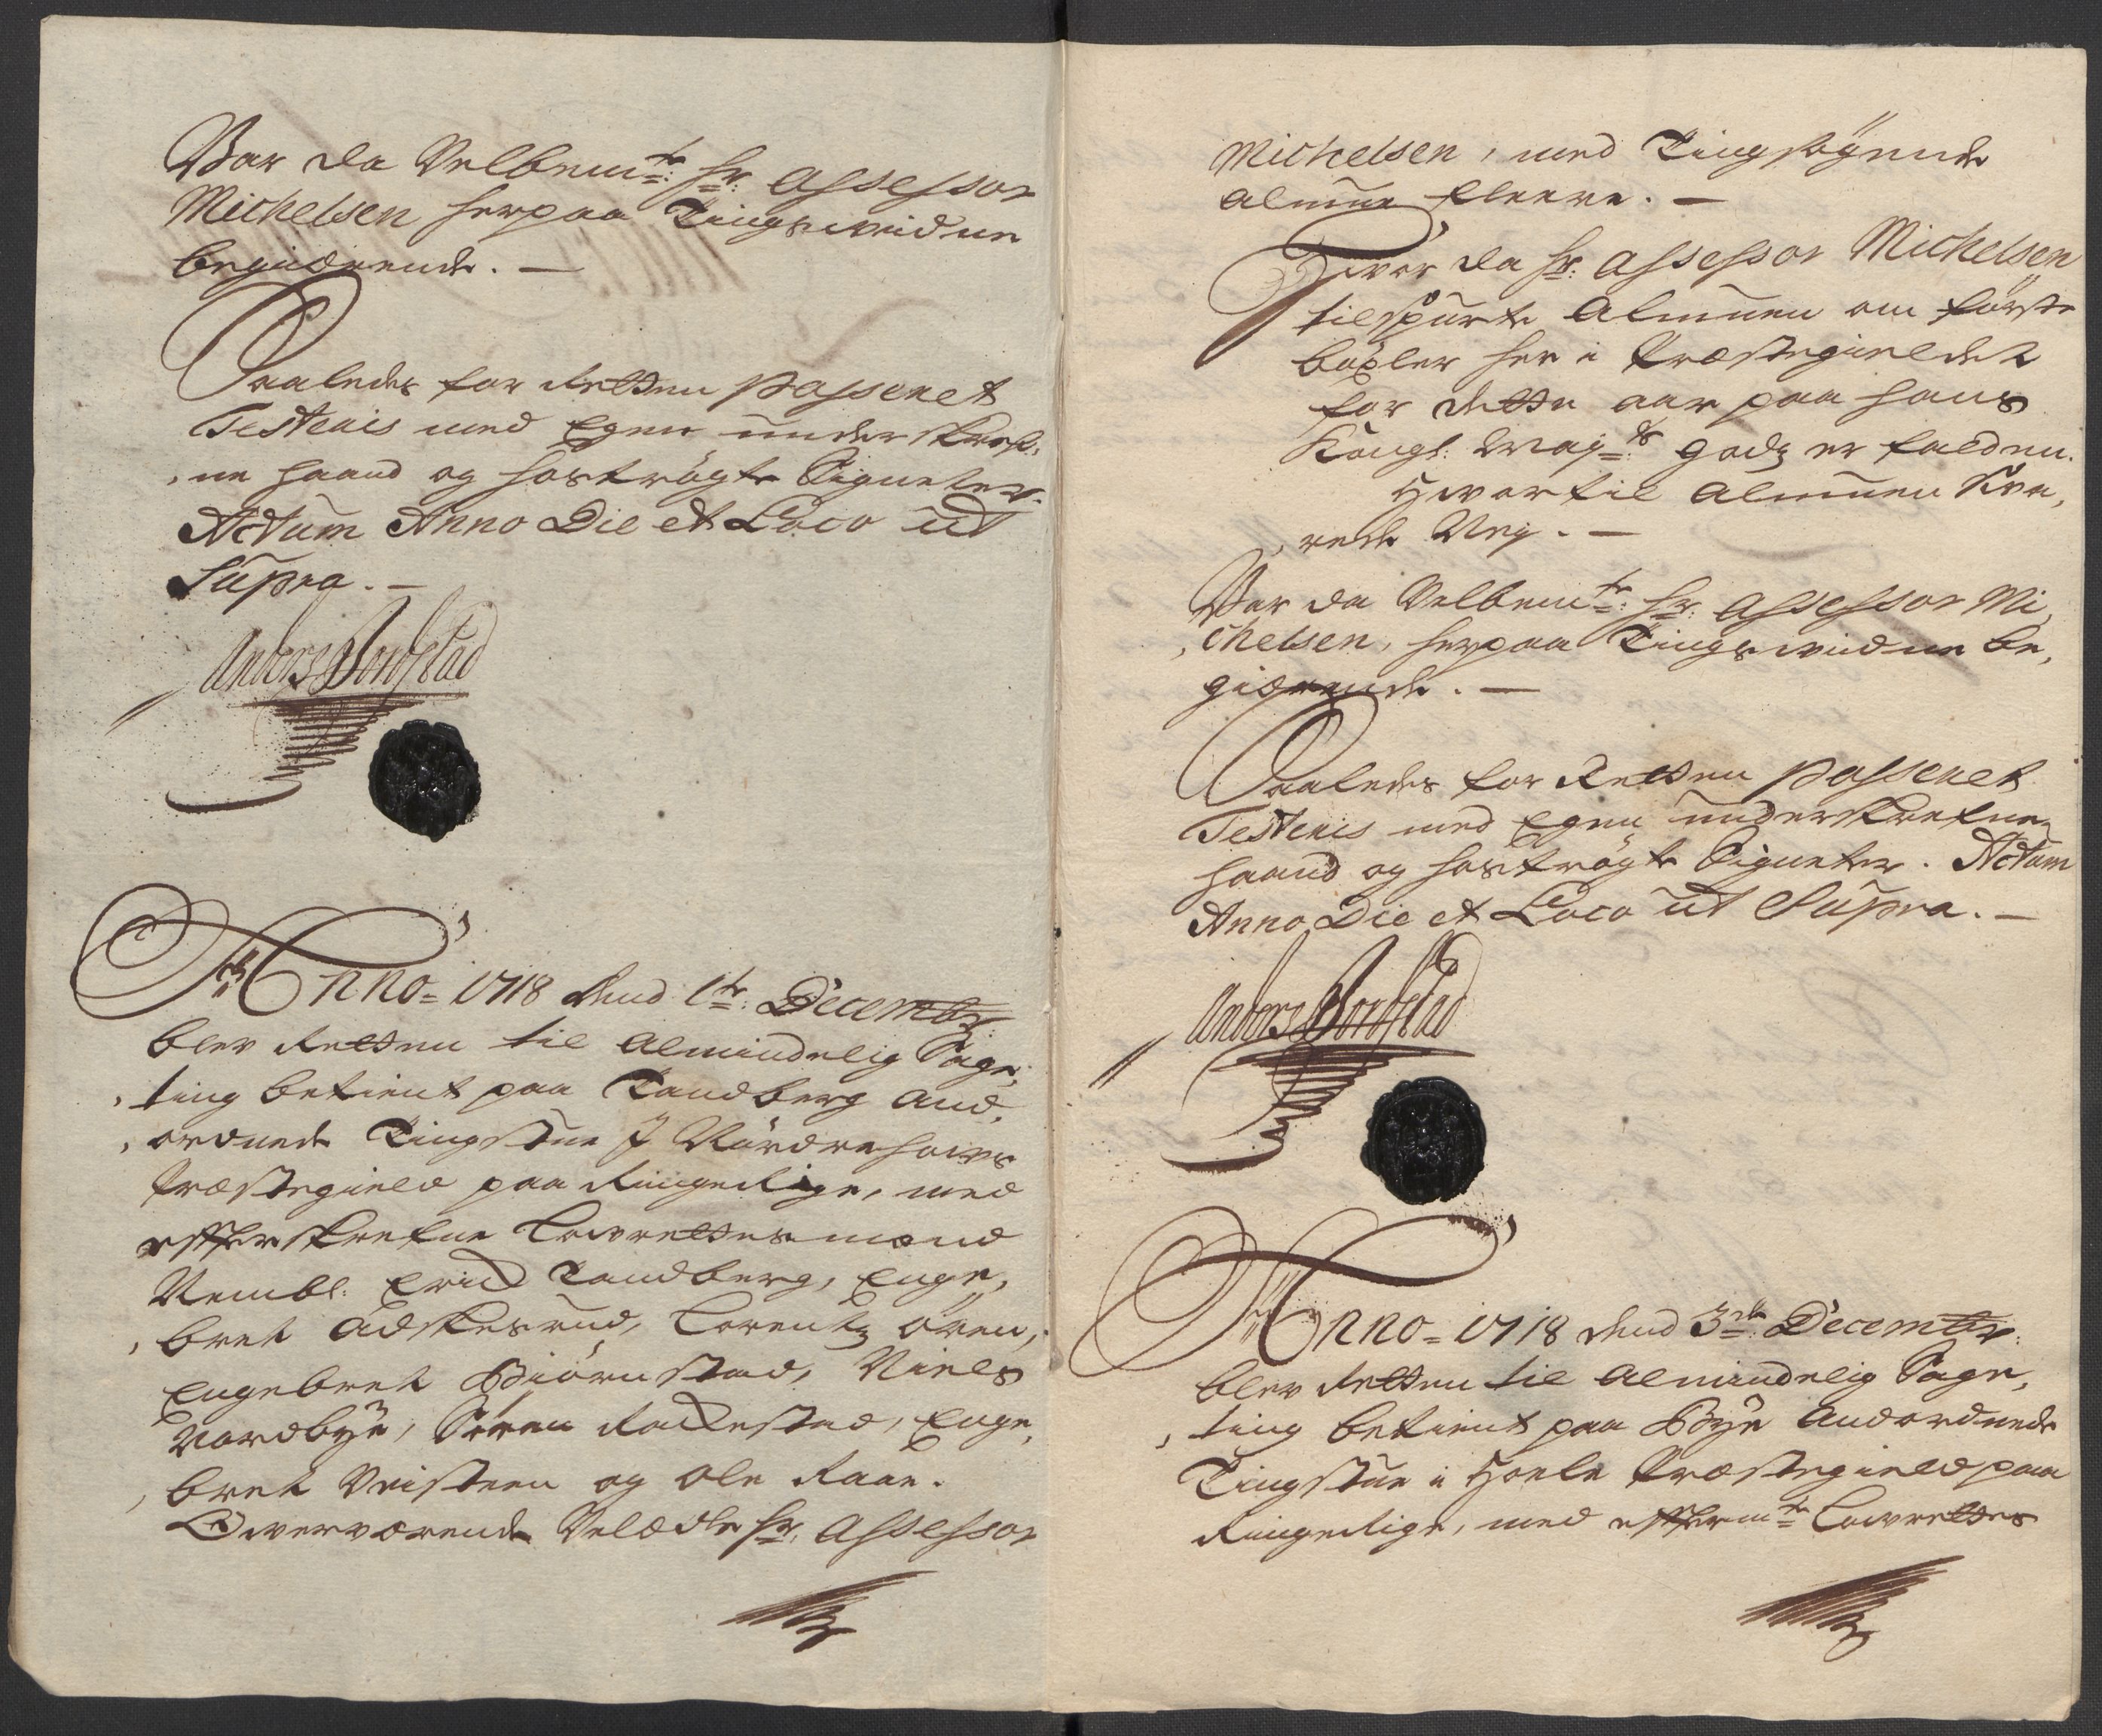 Var da Velbem:te Hr: Assessor
Michelsen herpaa Tingswidne
begiærende. —
Saaledes for Retten Passeret
Testeris med Egen underskref,
,ne haand og hostrøgte Signeter.
Actum Anno Die et Loco ut
Supra. —
Anders Borgstad
Anno = 1718 dend 1te: Decembr:
blev Retten til Almindelig Sage,
,ting betient paa Tandberg And,
,ordnede Tingstue I Nordrehows
Præstegield paa Ringerige, med
efterskrefne Lowrettesmænd
Nembl: Erich Tandberg, Enge,
,bret Askesrud, Lorentz Øren,
Engebret Biørnstad, Niels
Nordbye, Søren Rackestad, Enge,
,bret Veisteen og Ole Raae.
Owerværende Velædle Hr. Assessor
Michelsen, med Tingsøgende
Almue fleere. —
Hvor da Hr: Assessor Michelsen
tilspurte Almuen om første
böxler her i Præstegieldet
for dette aar paa hans
Kongl: Maj:ts Godz er falden.
Hvortil Almuen Sva,
,rede Nej. —
Var da Velbem:te Hr: Assessor Mi,
,chelsen, herpaa Tingswidne be,
giærende. —
Saaledes for Retten Passeret
Testeris med Egen underskrefne
haand og hostrøgte Signeter. Actum
Anno Die et Loco ut Supra. —
Anders Borgstad
Anno = 1718 dend 3de: Decembr:
blev Retten til Almindelig Sage,
,ting betient paa Bye Andordnede
Tingstue i Hoele Præstegield paa
Ringerige, med efterm:te Lowrettes